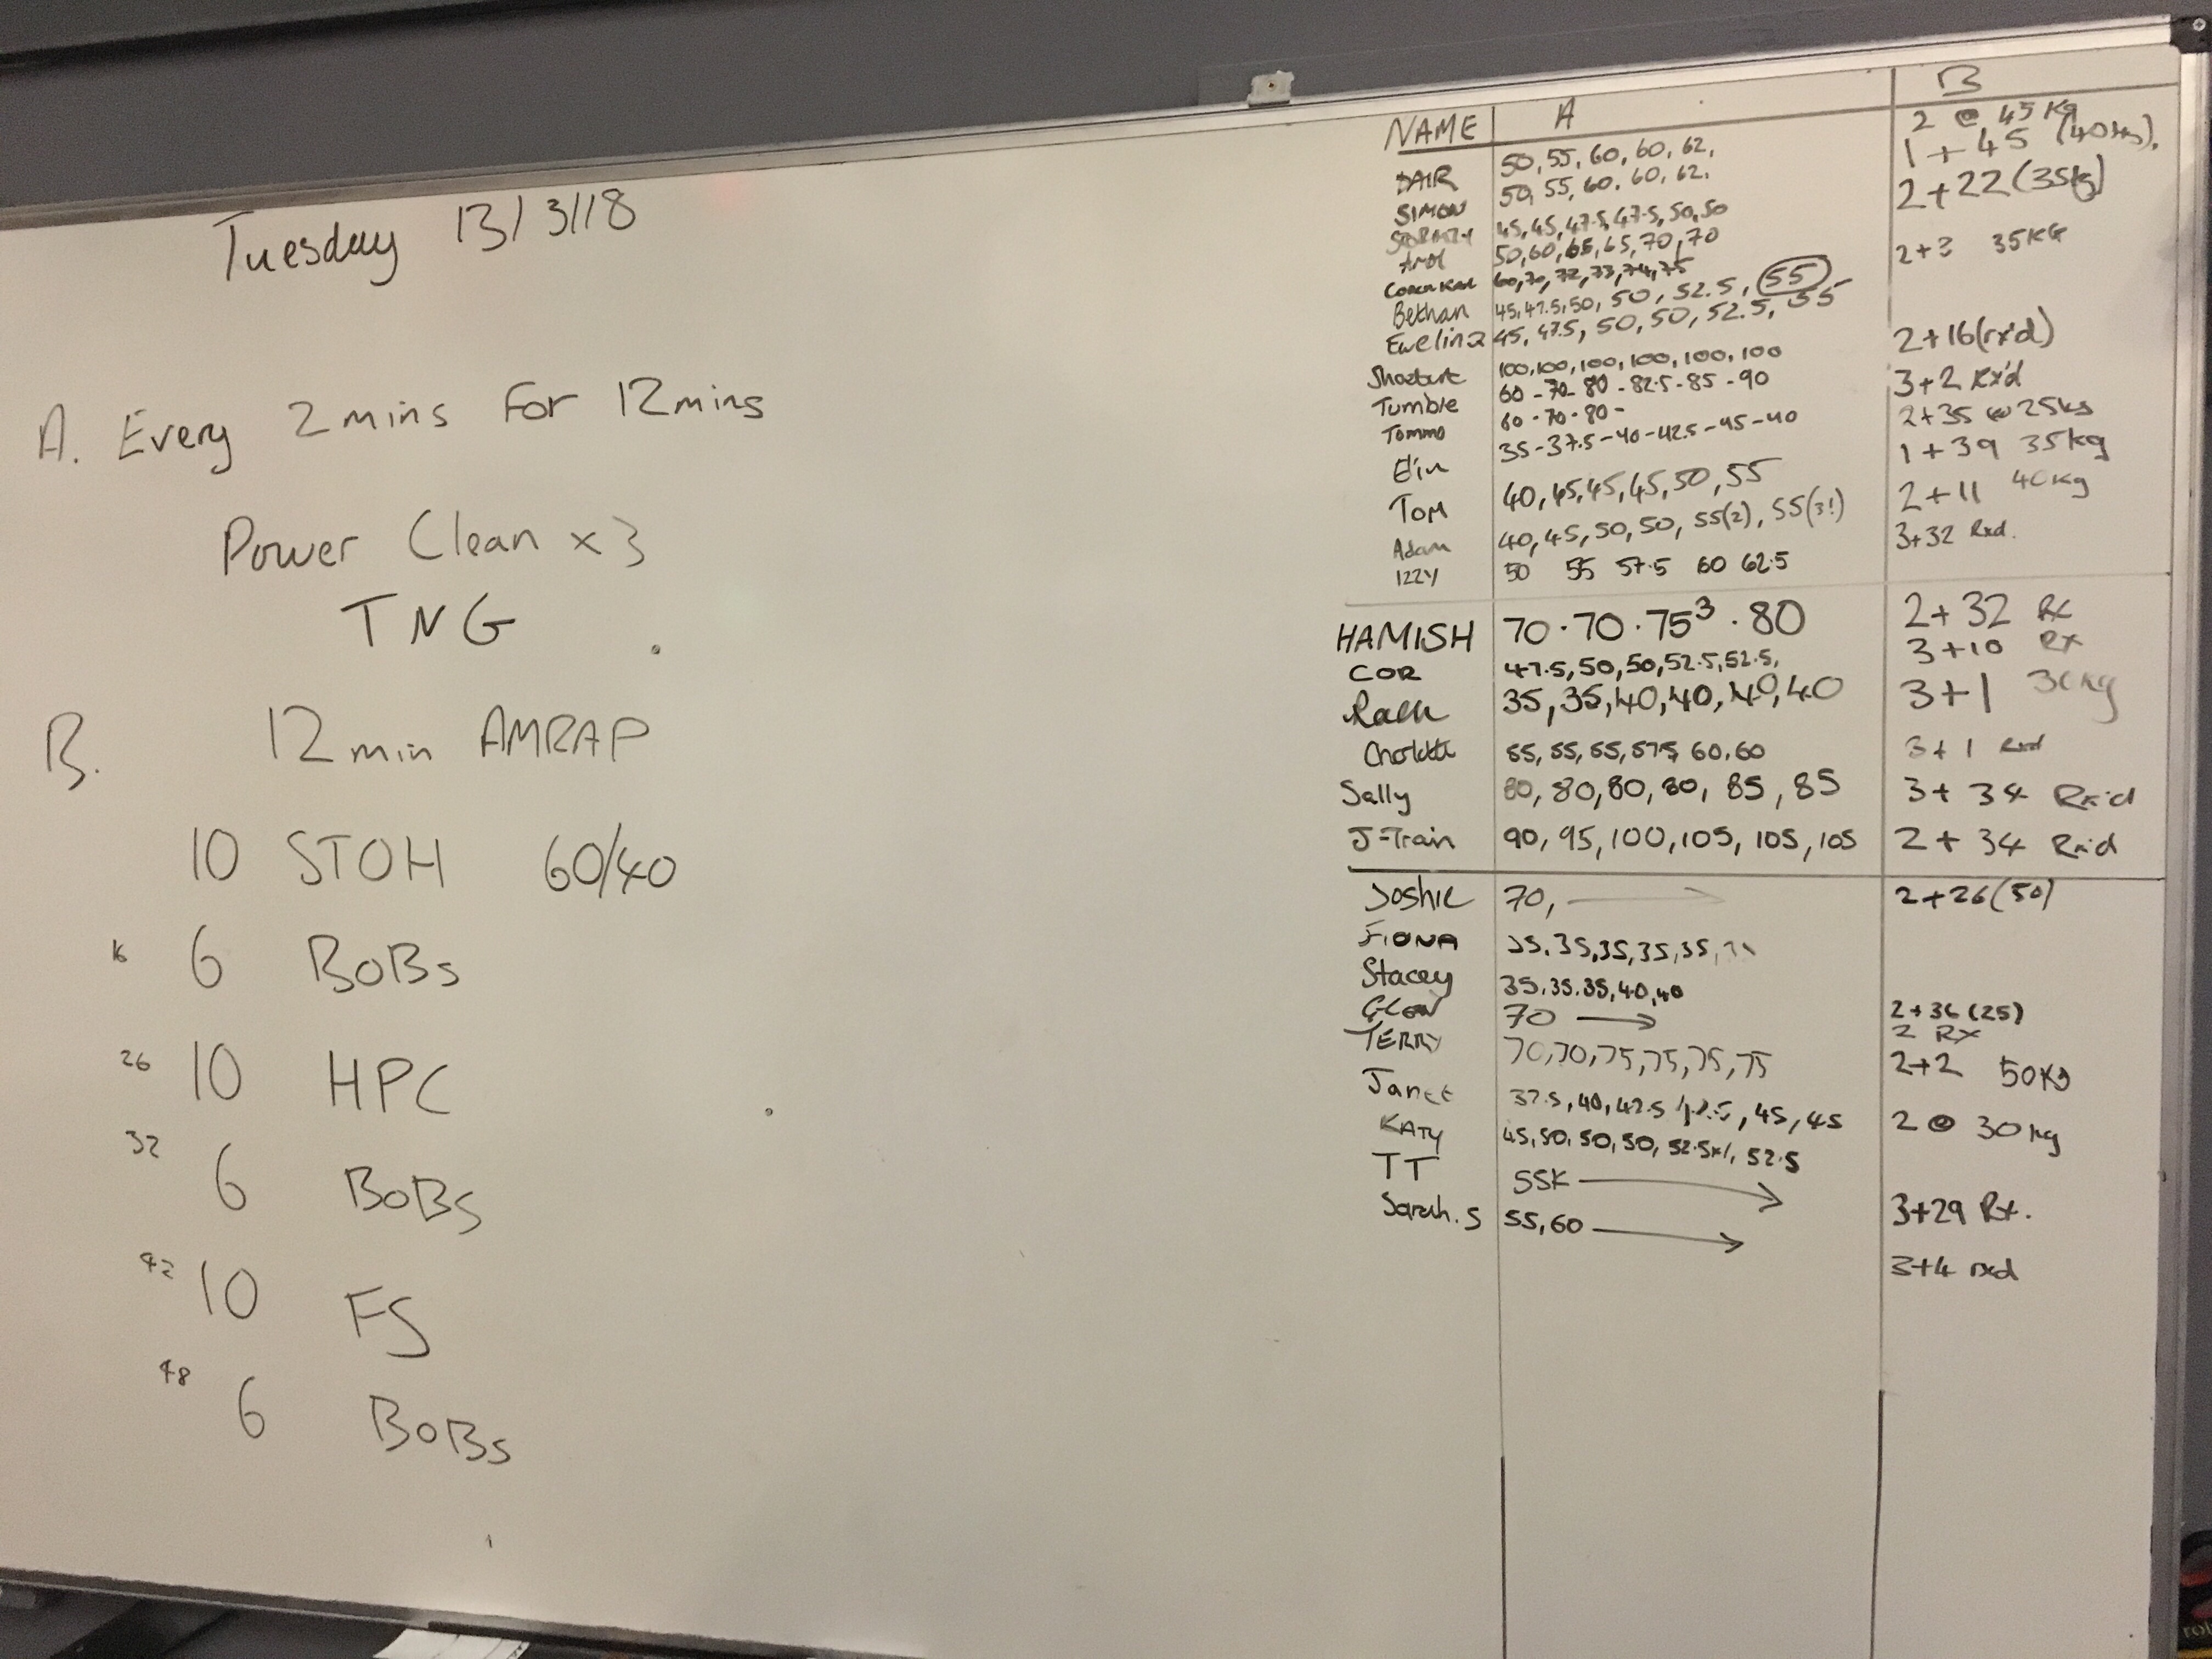 Tuesday 13/3/18
A. Every 2mins for 12mins
Power Clean x3
TNG
B. 12 min AMRAP
10 STOH 60/40
16 6 BOBs
26 10 HPC
32 6 BOBs
42 10 FS
48 6 BOBs
NAME A B
50, 55, 60, 60, 62, 2 @ 45 Kg
SIMON 50, 55, 60, 60, 62. 1 + 45
45, 45, 47.5, 47.5, 50, 50 2+22 (35kg)
50, 60, 65, 65, 70, 70 2+3 35KG
60, 70, 72, 73, 74, 75
Bethan 45, 47.5, 50, 50, 52.5, 55
Ewelina 45, 47.5, 50, 50, 52.5, 55 2+16 (rx'd)
100, 100, 100, 100, 100, 100 3+2 Rx'd
Tumble 60 - 70 - 80 - 82.5 - 85 - 90
Tommo 60 - 70 - 80 - 2+35 @ 25kg
Elin 35 - 37.5 - 40 - 42.5 - 45 - 40 1 + 39 35kg
Tom 40, 45, 45, 45, 50, 55 2+11 40kg
Adam 40, 45, 50, 50, 55(2), 55(3!) 3+32 Rxd.
IZZY 50 55 57.5 60 62.5
HAMISH 70 · 70 · 75³ · 80 2+32 Rx
COR 47.5, 50, 50, 52.5, 52.5, 3+10 Rx
35, 35, 40, 40, 40, 40 3+1 30kg
55, 55, 55, 57.5, 60, 60 3+1 Rxd
Sally 80, 80, 80, 80, 85, 85 3+34 Rx'd
J-Train 90, 95, 100, 105, 105, 105 2+34 Rx'd
Joshie 70, → 2+26 (50)
FIONA 35, 35, 35, 35, 35,
Stacey 35, 35, 35, 40, 40
GLEN 70 → 2+36 (25)
TERRY 70, 70, 75, 75, 75, 75 2 RX
Janet 37.5, 40, 42.5, 42.5, 45, 45 2+2 50KG
KATY 45, 50, 50, 50, 52.5x1, 52.5 2 @ 30kg
TT 55K → 3+29 Rx.
Sarah. S 55, 60 → 3+4 rxd